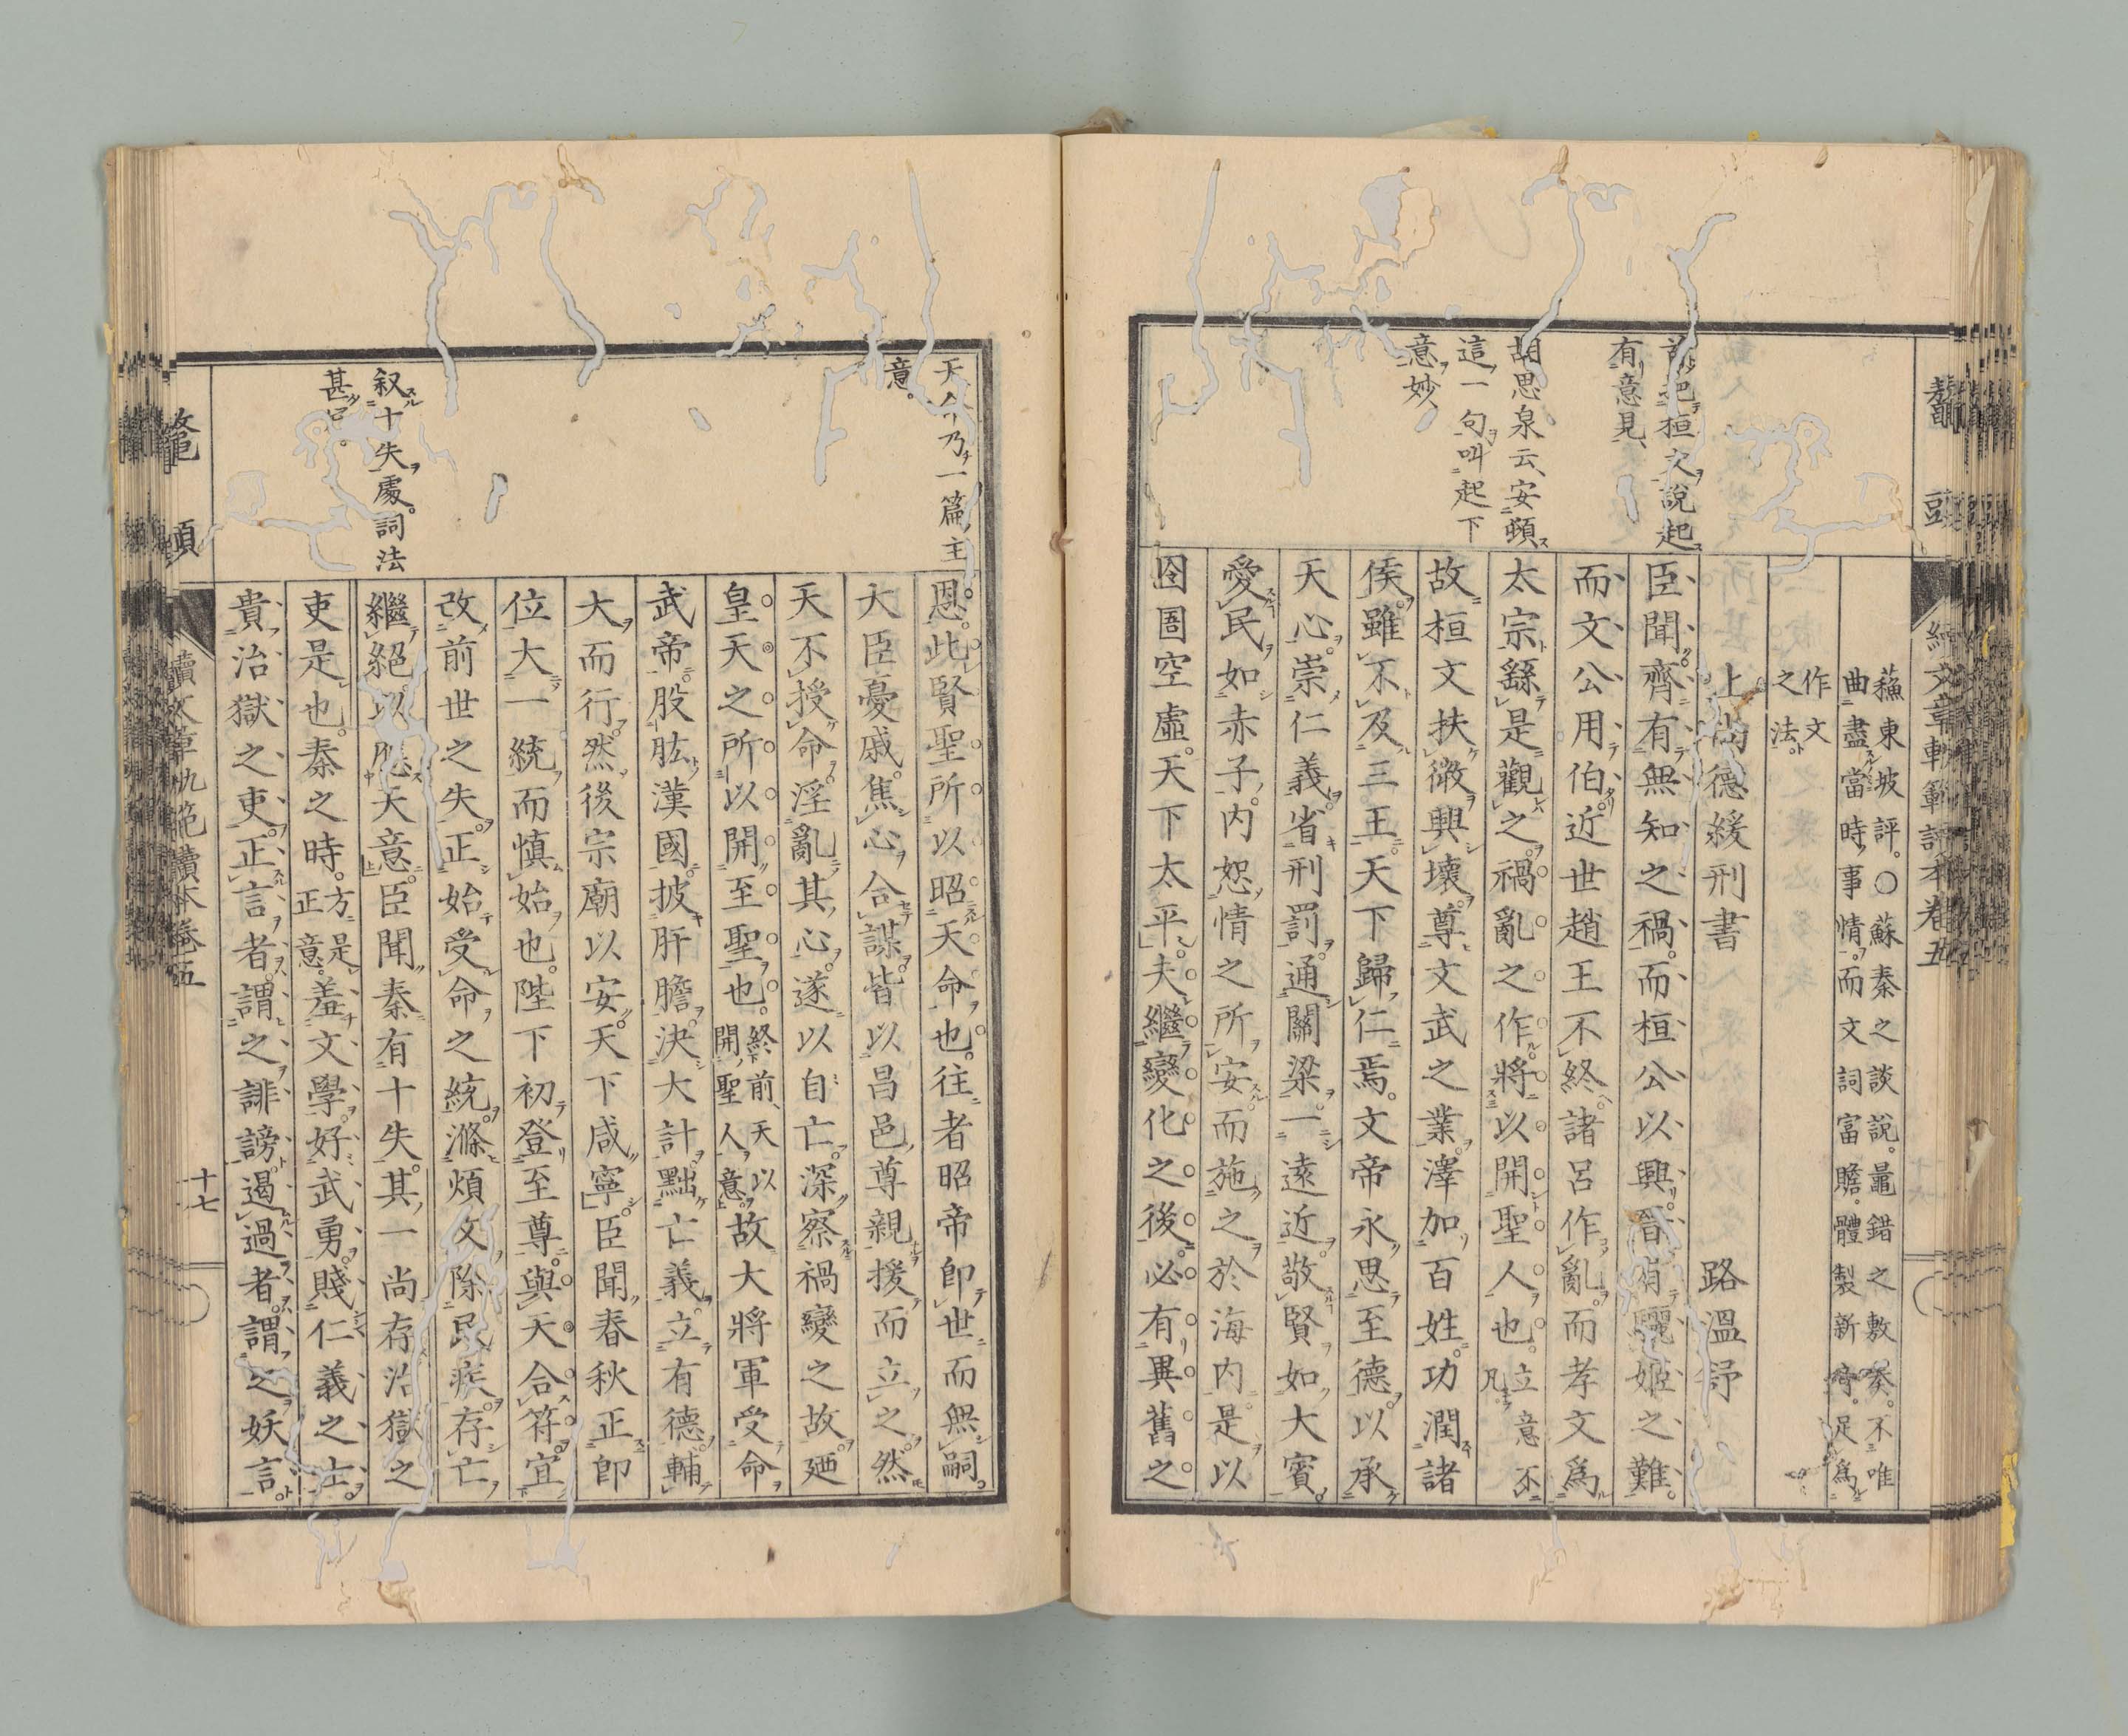 鼇頭
續文章軌範評本卷五
蘇東坡評。○蘇秦之談說。鼂錯之敷奏。不唯
曲盡當時事情。而文詞富贍。體製新奇。足爲
作文
之法。
上尚德緩刑書 路溫舒
臣聞齊有無知之禍。而桓公以興。晉有驪姬之難。
而文公用伯。近世趙王不終。諸呂作亂。而孝文爲
太宗。繇是觀之。禍亂之作。將以開聖人也。立意不凡
故桓文扶微興壞。尊文武之業。澤加百姓。功潤諸
侯。雖不及三王。天下歸仁焉。文帝永思至德。以承
天心。崇仁義。省刑罰。通關梁。一遠近。敬賢如大賓。
愛民如赤子。內恕情之所安。而施之於海內。是以
囹圄空虛。天下太平。夫繼變化之後。必有異舊之
首把桓文說起
有意見、
胡思泉云、安頓
這一句叫起下
意妙
恩。此賢聖所以昭天命也。往者昭帝卽世而無嗣。
大臣憂戚。焦心合謀。皆以昌邑尊親。援而立之。然
天不授命。淫亂其心。遂以自亡。深察禍變之故。廼
皇天之所以開至聖也。終前、天以開聖人意。故大將軍受命
武帝。股肱漢國。披肝膽。決大計。黜亡義。立有德。輔
天而行。然後宗廟以安。天下咸寧。臣聞春秋正卽
位。大一統而慎始也。陛下初登至尊。與天合符。宜
改前世之失。正始受命之統。滌煩文。除民疾。存亡
繼絕。以應天意。臣聞秦有十失。其一尚存。治獄之
吏是也。秦之時。方是正意。羞文學。好武勇。賤仁義之士。
貴治獄之吏。正言者。謂之誹謗。遏過者。謂之妖言。
天命乃一篇主
意。
叙十失處。詞法
甚
鼇頭
續文章軌範讀本卷五
十七